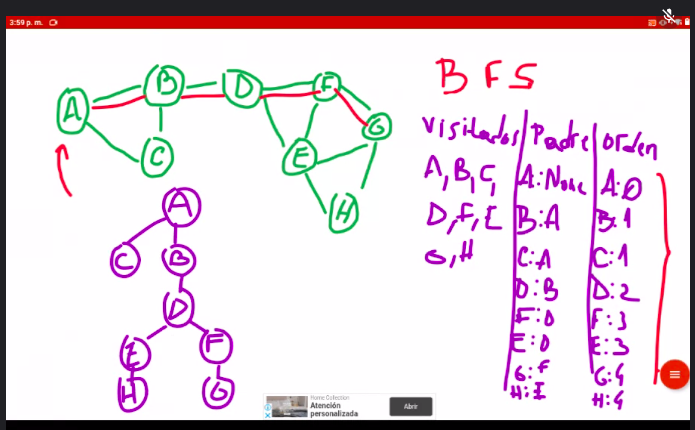 3:59 p. m.
B F S
A
B
D
F
G
C
E
H
Visitados Padre Orden
A, B, C, A: None A: 0
D, F, E B: A B: 1
G, H C: A C: 1
D: B D: 2
F: D F: 3
E: D E: 3
G: F G: 4
H: E H: 4
A
C B
D
E F
H G
Home Collection
Atención
personalizada
Abrir